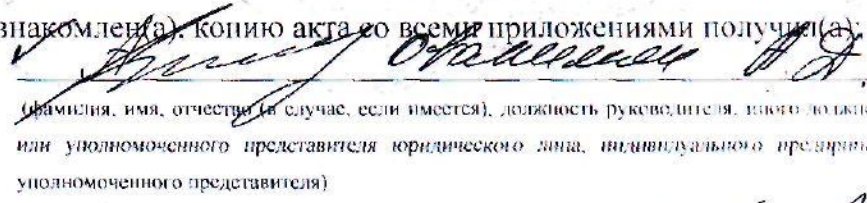 знакомлен(а), копию акта со всеми приложениями получил(а):
(фамилия, имя, отчество (в случае, если имеется), должность руководителя, иного должно
или уполномоченного представителя юридического лица, индивидуального предприн
уполномоченного представителя)